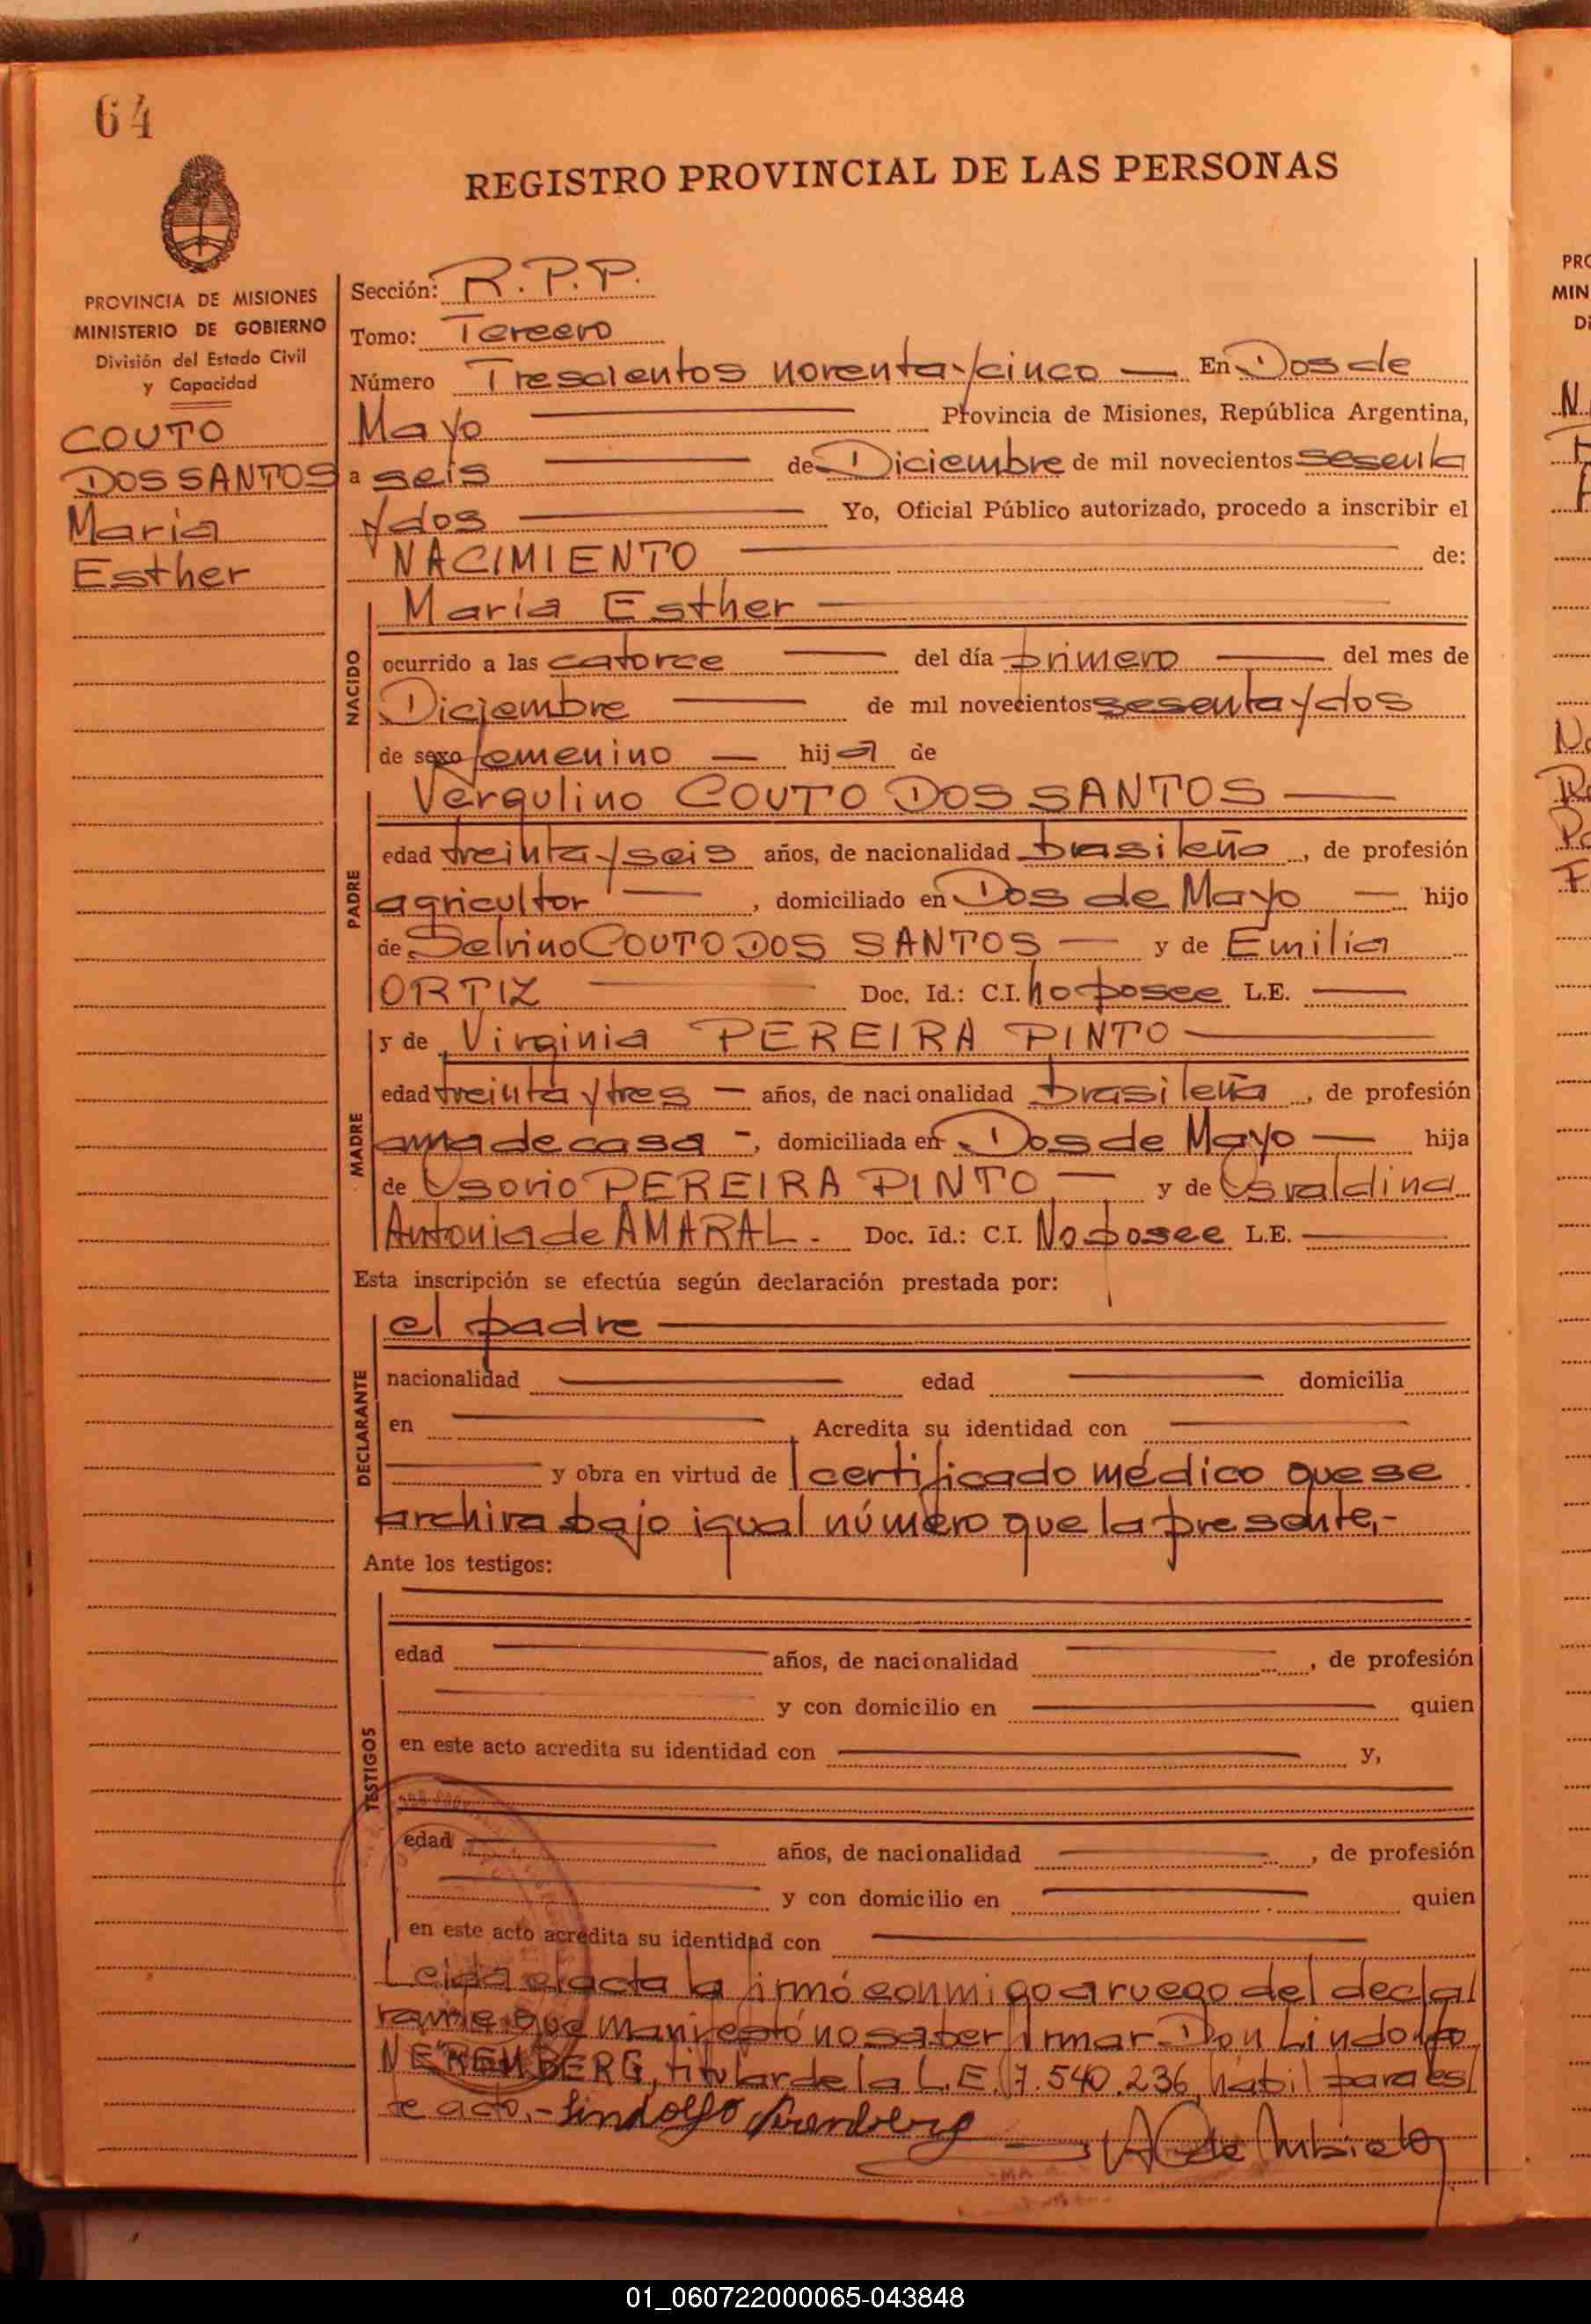 64
REGISTRO PROVINCIAL DE LAS PERSONAS
PROVINCIA DE MISIONES
MINISTERIO DE GOBIERNO
División del Estado Civil
y Capacidad
COUTO
DOS SANTOS
Maria
Esther
Sección: R.P.P.
Tomo: Tercero
Número Trescientos noventa y cinco — En Dos de
Mayo — Provincia de Misiones, República Argentina,
a seis — de Diciembre de mil novecientos sesenta
y dos — Yo, Oficial Público autorizado, procedo a inscribir el
NACIMIENTO — de:
NACIDO
María Esther —
ocurrido a las catorce — del día primero — del mes de
Diciembre — de mil novecientos sesenta y dos
de sexo femenino — hija de
PADRE
Vergulino COUTO DOS SANTOS —
edad treinta y seis años, de nacionalidad brasileño, de profesión
agricultor —, domiciliado en Dos de Mayo — hijo
de Selvino COUTO DOS SANTOS — y de Emilia
ORTIZ — Doc. Id.: C.I. no posee L.E. —
MADRE
y de Virginia PEREIRA PINTO —
edad treinta y tres — años, de nacionalidad brasileña, de profesión
ama de casa -, domiciliada en Dos de Mayo — hija
de Osorio PEREIRA PINTO — y de Osvaldina
Antonia de AMARAL.- Doc. Id.: C.I. No posee L.E. —
Esta inscripción se efectúa según declaración prestada por:
DECLARANTE
el padre —
nacionalidad — edad — domicilia
en — Acredita su identidad con —
— y obra en virtud de certificado médico que se
archiva bajo igual número que la presente,-
Ante los testigos:
TESTIGOS
edad — años, de nacionalidad —, de profesión
— y con domicilio en — quien
en este acto acredita su identidad con — y,
edad — años, de nacionalidad —, de profesión
— y con domicilio en — quien
en este acto acredita su identidad con —
Leida el acta la firmó conmigo a ruego del decla/
rante que manifestó no saber firmar Don Lindolfo
NERENBERG, titular de la L.E. 7.540.236, habil para es/
te acto.- Lindolfo Nerenberg
PRO
MIN
Di
01_060722000065-043848